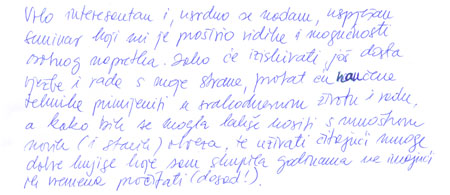 Vrlo interesantan i, usrdno se nadam, uspješan
seminar koji mi je proširio vidike i mogućnosti
osobnog napretka. Iako će iziskivati još dosta
vježbe i rada s moje strane, probat ću naučene
tehnike primijeniti u svakodnevnom životu i radu,
a kako bih se mogla lakše nositi s mnoštvom
novih (i starih) obveza, te uživati čitajući mnoge
dobre knjige koje sam skupila godinama ne imajući
vremena pročitati (dosad!).